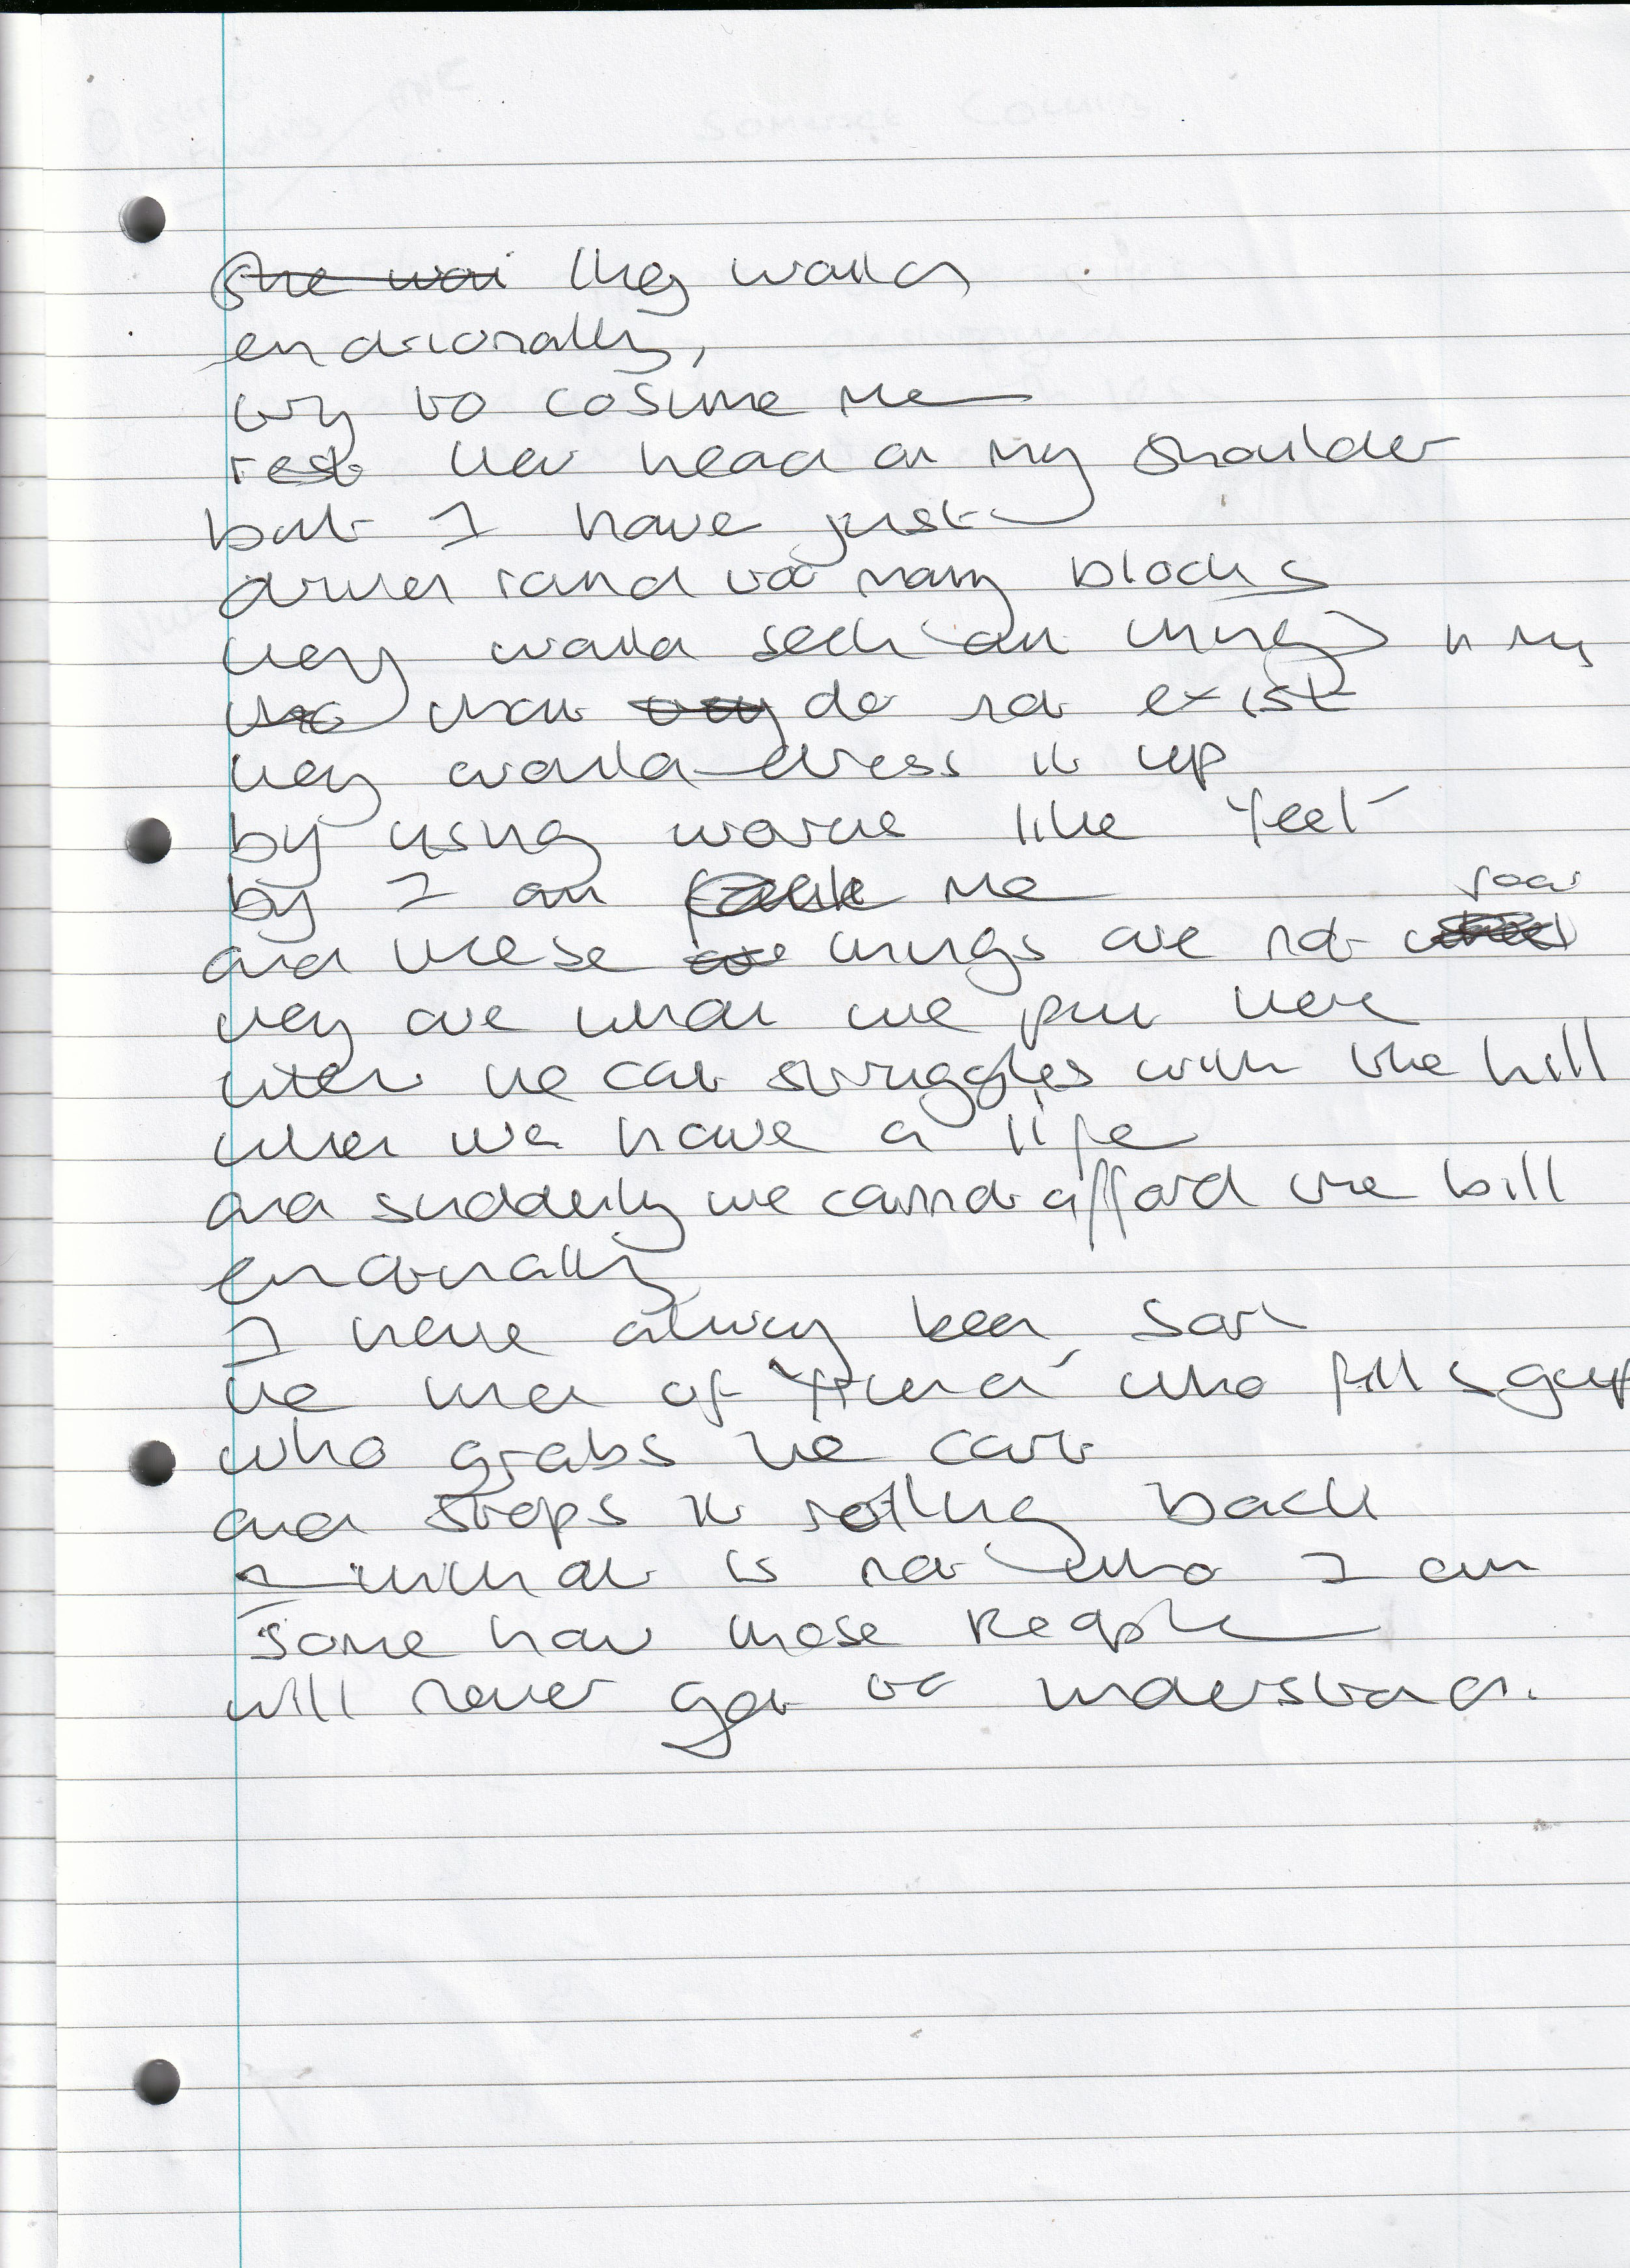 They would
emotionally,
try to cosume me
rest their head on my shoulder
but I have just
driven round too many blocks
they would seek out things in my
that do not exist
they would dress it up
by using words like 'feel'
by I am me
and these things are not real
they are what we put here
when the car struggles with the hill
when we have a life
and suddenly we cannot afford the bill
emotionally
I have always been
the man of who fills gaps
who grabs the cart
and stops it rolling back
that is not who I am
some how those people
will never get to understand.